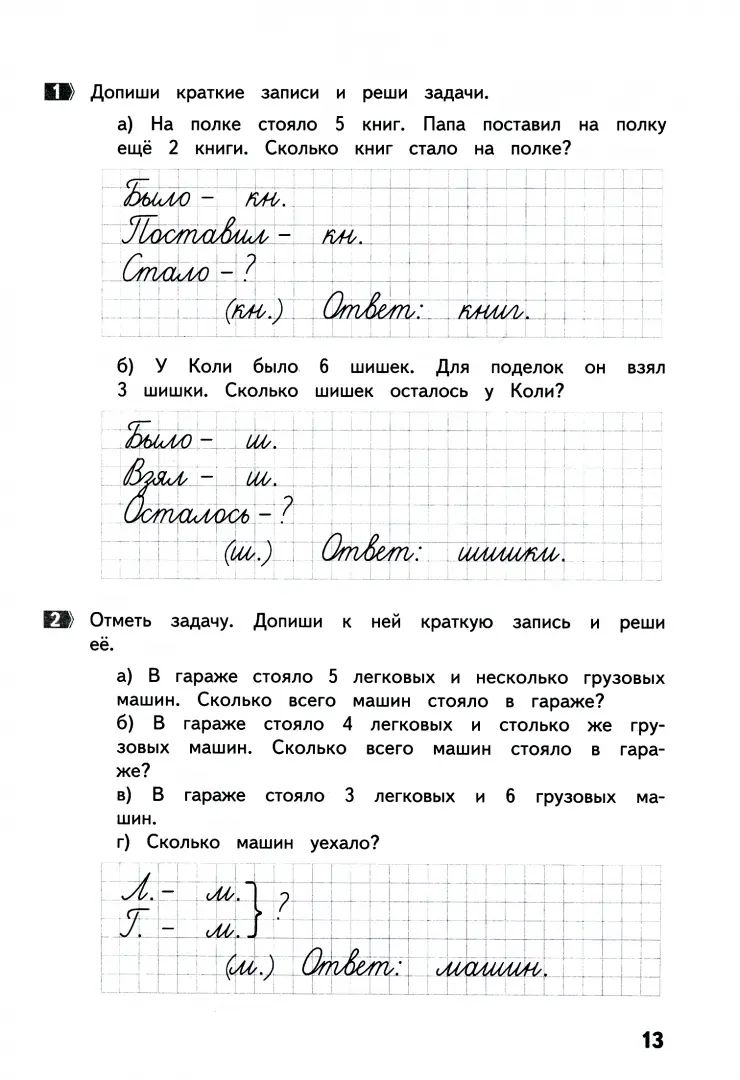 1 Допиши краткие записи и реши задачи.
а) На полке стояло 5 книг. Папа поставил на полку
ещё 2 книги. Сколько книг стало на полке?
Было – кн.
Поставил – кн.
Стало – ?
(кн.) Ответ: книг.
б) У Коли было 6 шишек. Для поделок он взял
3 шишки. Сколько шишек осталось у Коли?
Было – ш.
Взял – ш.
Осталось – ?
(ш.) Ответ: шишки.
2 Отметь задачу. Допиши к ней краткую запись и реши
её.
а) В гараже стояло 5 легковых и несколько грузовых
машин. Сколько всего машин стояло в гараже?
б) В гараже стояло 4 легковых и столько же гру-
зовых машин. Сколько всего машин стояло в гара-
же?
в) В гараже стояло 3 легковых и 6 грузовых ма-
шин.
г) Сколько машин уехало?
Л. – м. } ?
Г. – м.
(м.) Ответ: машин.
13